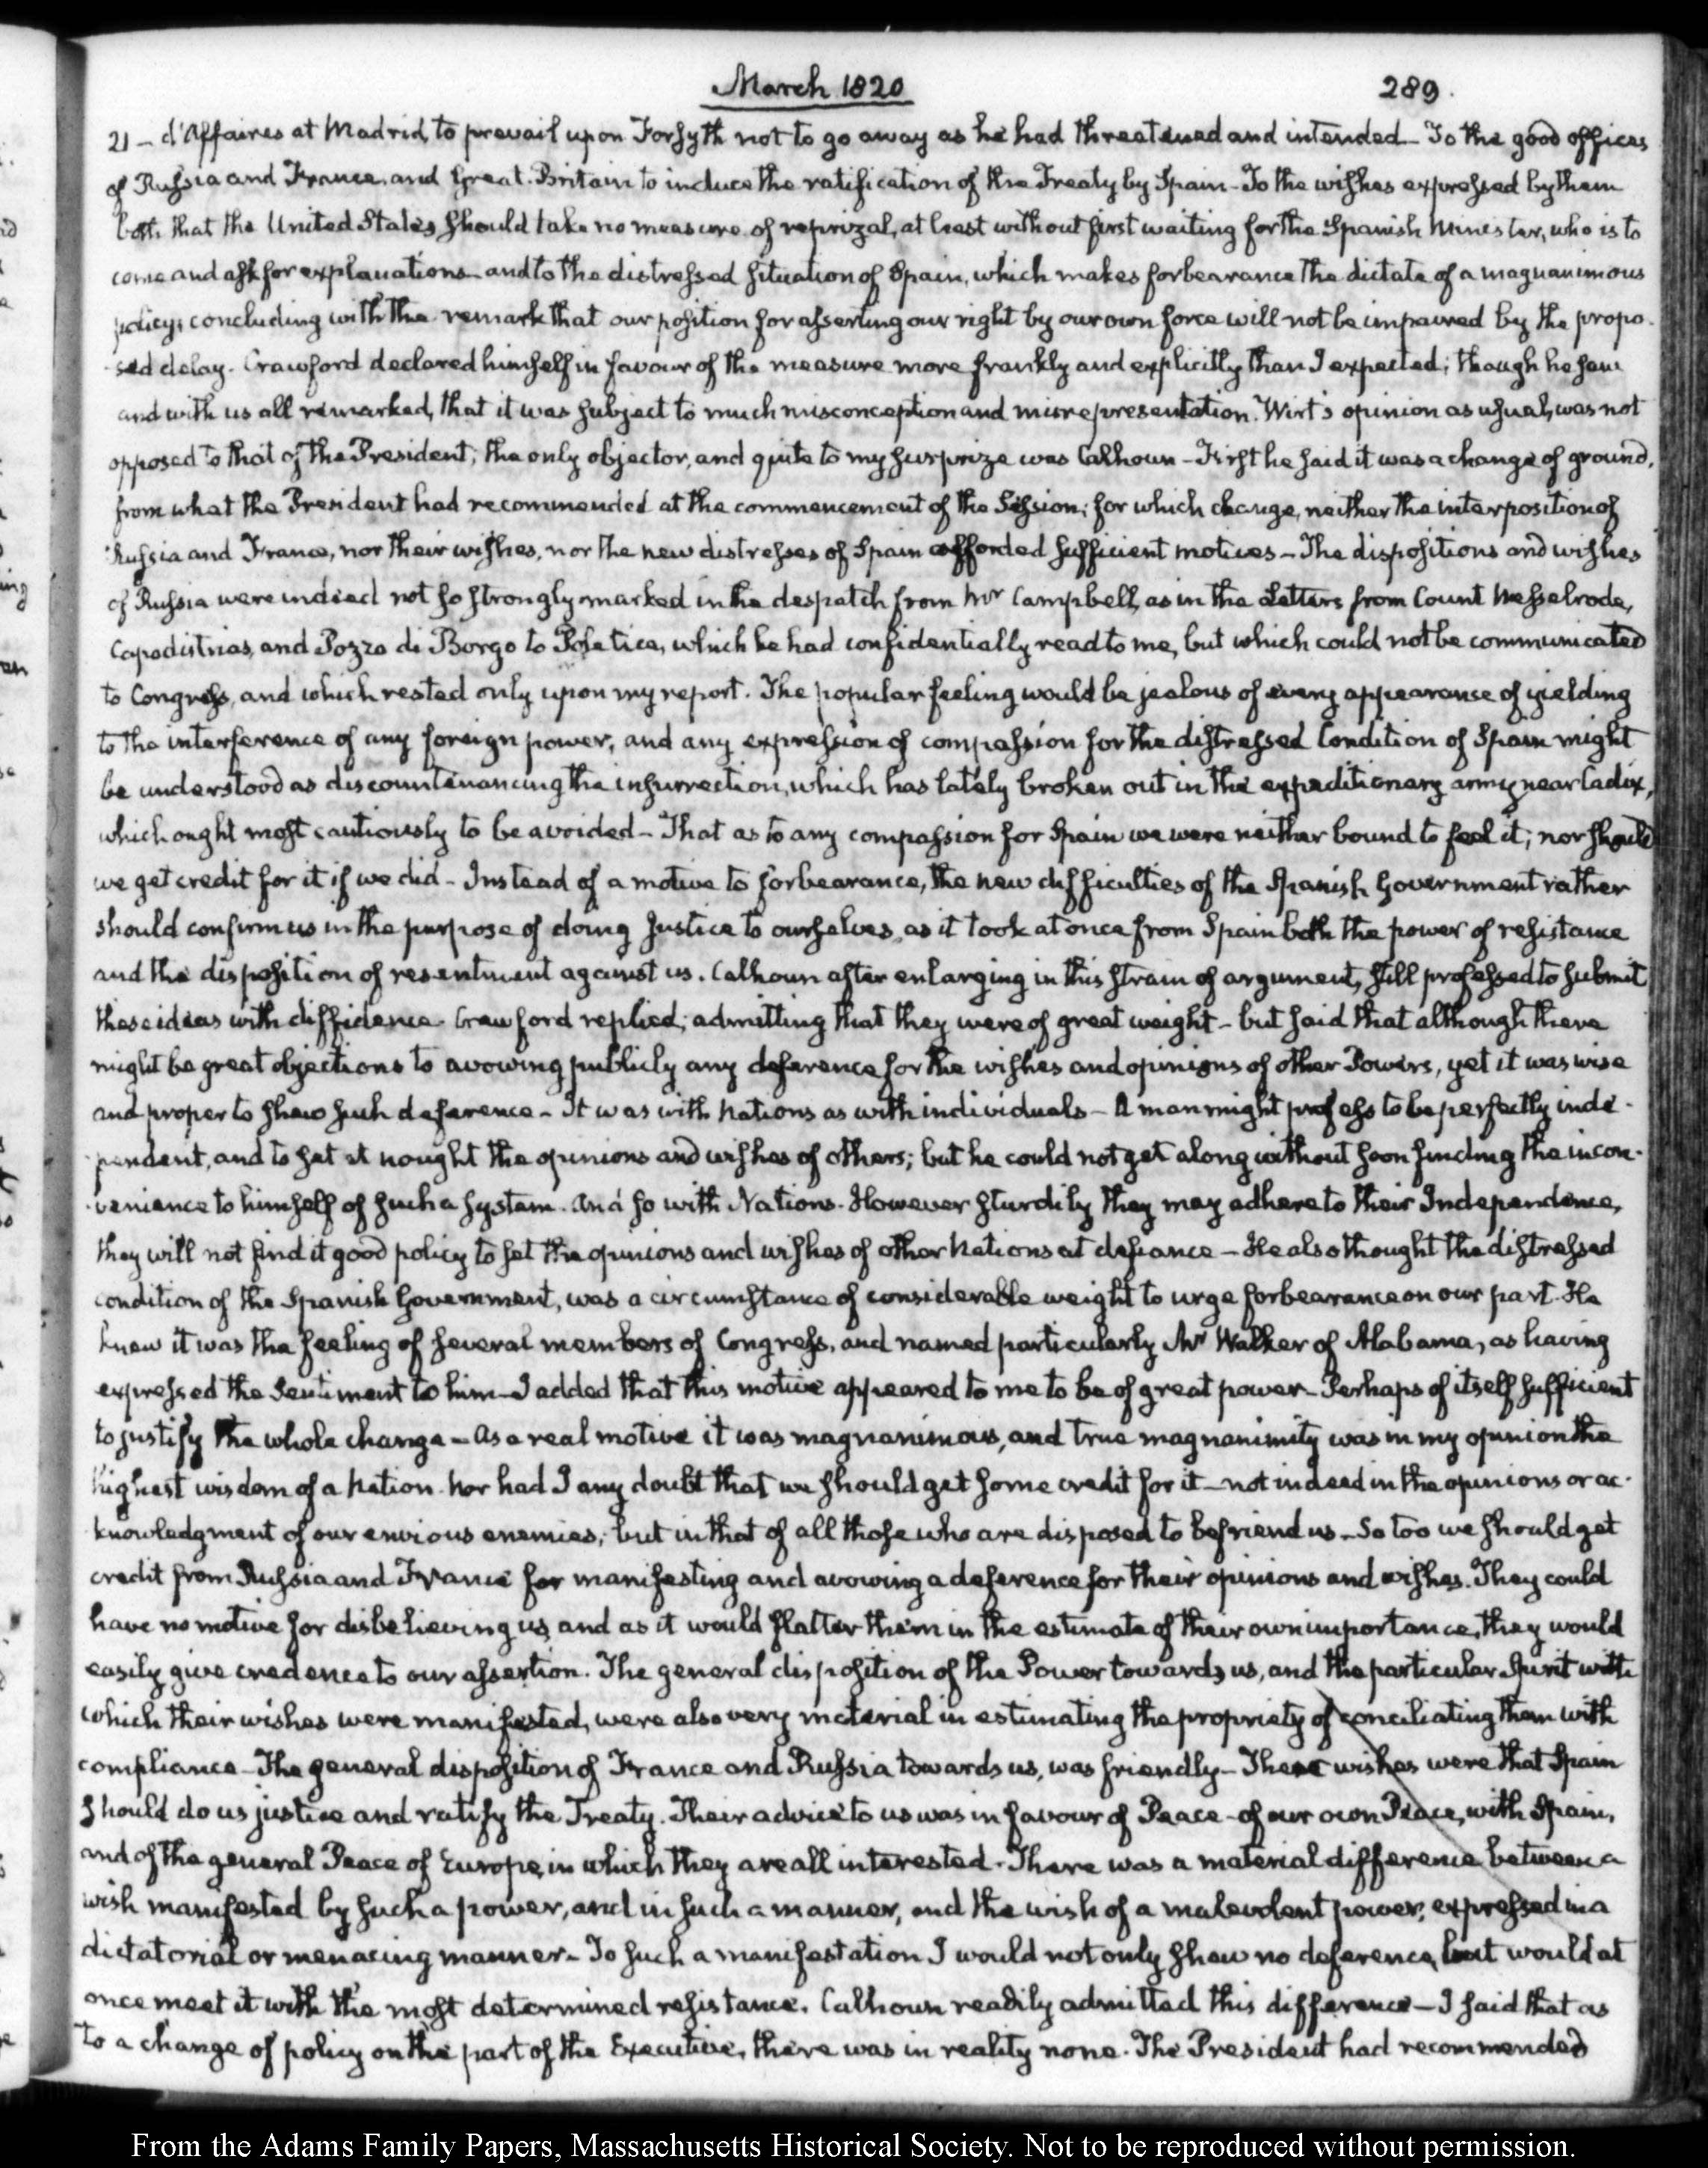 March 1820
289.
21 – d'Affaires at Madrid, to prevail upon Forsyth not to go away as he had threatened and intended – To the good offices
of Russia and France, and Great-Britain to induce the ratification of the Treaty by Spain – To the wishes expressed by them
both that the United States should take no measure of reprizal, at least without first waiting for the Spanish Minister, who is to
come and ask for explanations – and to the distressed situation of Spain, which makes forbearance the dictate of a magnanimous
policy; concluding with the remark that our position for asserting our right by our own force will not be impaired by the propo-
sed delay. Crawford declared himself in favour of the measure more frankly and explicitly than I expected; though he saw
and with us all remarked, that it was subject to much misconception and misrepresentation. Wirt's opinion as usual, was not
opposed to that of the President; the only objector, and quite to my surprize was Calhoun – First he said it was a change of ground,
from what the President had recommended at the commencement of the Session; for which change, neither the interposition of
Russia and France, nor their wishes, nor the new distresses of Spain afforded sufficient motives – The dispositions and wishes
of Russia were indeed not so strongly marked in the despatch from Mr Campbell, as in the Letters from Count Nesselrode,
Capodistrias, and Pozzo di Borgo to Poletica, which he had confidentially read to me, but which could not be communicated
to Congress, and which rested only upon my report. The popular feeling would be jealous of every appearance of yielding
to the interference of any foreign power, and any expression of compassion for the distressed Condition of Spain might
be understood as discountenancing the insurrection, which has lately broken out in the expeditionary army near Cadix,
which ought most cautiously to be avoided – That as to any compassion for Spain we were neither bound to feel it; nor should
we get credit for it if we did – Instead of a motive to forbearance, the new difficulties of the Spanish Government rather
should confirm us in the purpose of doing Justice to ourselves, as it took at once from Spain both the power of resistance
and the disposition of resentment against us. Calhoun after enlarging in this strain of argument, still professed to submit
these ideas with diffidence. Crawford replied, admitting that they were of great weight – but said that although there
might be great objections to avowing publicly any deference for the wishes and opinions of other Powers, yet it was wise
and proper to shew such deference – It was with Nations as with individuals – A man might profess to be perfectly inde-
pendent, and to set at nought the opinions and wishes of others; but he could not get along without soon finding the incon-
venience to himself of such a system. And so with Nations. However sturdily they may adhere to their Independence,
they will not find it good policy to set the opinions and wishes of other Nations at defiance – He also thought the distressed
condition of the Spanish Government, was a circumstance of considerable weight to urge forbearance on our part. He
knew it was the feeling of several members of Congress, and named particularly Mr Walker of Alabama, as having
expressed the sentiment to him – I added that this motive appeared to me to be of great power – Perhaps of itself sufficient
to justify the whole change – As a real motive it was magnanimous, and true magnanimity was in my opinion the
highest wisdom of a Nation. Nor had I any doubt that we should get some credit for it – not indeed in the opinions or ac-
knowledgment of our envious enemies; but in that of all those who are disposed to befriend us – So too we should get
credit from Russia and France for manifesting and avowing a deference for their opinions and wishes. They could
have no motive for disbelieving us, and as it would flatter them in the estimate of their own importance, they would
easily give credence to our assertion. The general disposition of the Power towards us, and the particular spirit with
which their wishes were manifested, were also very material in estimating the propriety of conciliating them with
compliance – The general disposition of France and Russia towards us, was friendly – Their wishes were that Spain
should do us justice and ratify the Treaty. Their advice to us was in favour of Peace – of our own Peace, with Spain,
and of the general Peace of Europe, in which they are all interested. There was a material difference between a
wish manifested by such a power, and in such a manner, and the wish of a malevolent power, expressed in a
dictatorial or menacing manner – To such a manifestation I would not only shew no deference, but would at
once meet it with the most determined resistance. Calhoun readily admitted this difference – I said that as
to a change of policy on the part of the Executive, there was in reality none. The President had recommended
From the Adams Family Papers, Massachusetts Historical Society. Not to be reproduced without permission.